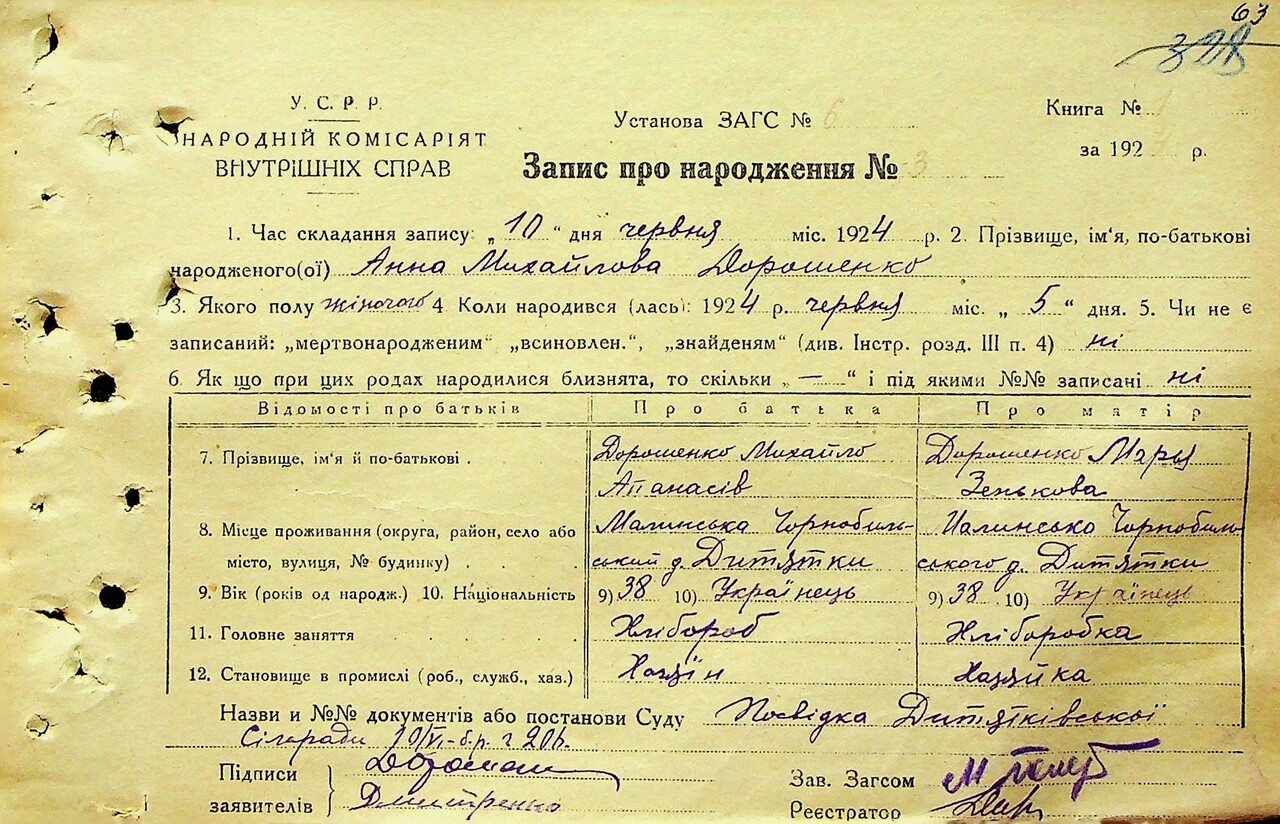 63
328
У. С. Р. Р.
НАРОДНІЙ КОМІСАРІЯТ
ВНУТРІШНІХ СПРАВ
Установа ЗАГС № 6
Книга № 1
за 192 р.
Запис про народження № 3
1. Час складання запису: „10“ дня червня міс. 1924 р. 2. Прізвище, ім'я, по-батькові
народженого(ої) Анна Михайлова Дорошенко
3. Якого полу жіночого 4. Коли народився (лась): 1924 р. червня міс. „5“ дня. 5. Чи не є
записаний: „мертвонародженим“ „всиновлен.“, „знайденям“ (див. Інстр. розд. III п. 4) ні
6. Як що при цих родах народилися близнята, то скільки „—“ і під якими №№ записані ні
Відомості про батьків Про батька Про матір
7. Прізвище, ім'я й по-батькові . Дорошенко Михайло Дорошенко Марья
Апанасів Зенькова
8. Місце проживання (округа, район, село або Малинська Чорнобиль- Малинсько Чорнобиль-
місто, вулиця, № будинку) . . ський д. Дитятки ського д. Дитятки
9. Вік (років од народж.) 10. Національність 9) 38 10) Українець 9) 38 10) Українець
11. Головне заняття . . . . Хлібороб Хліборобка
12. Становище в промислі (роб., служб., хаз.) Хазяїн Хазяйка
Назви и №№ документів або постанови Суду Посвідка Дитятківської
Сільради 10/VI-б.р. г 206.
Підписи
заявителів Дмитренко
Зав. Загсом
Реєстратор